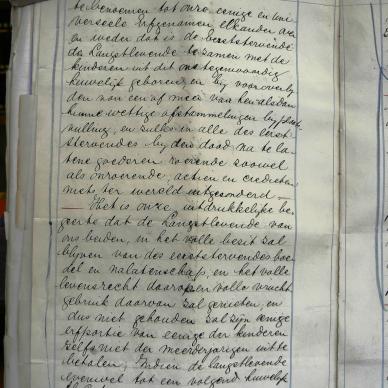 te benoemen tot onze eenige en uni
verseele erfgenamen elkander over
en weder dat is de eerststervende
de Langstlevende te zamen met de
kinderen uit dit ons tegenwoordig
huwelijk geboren en bij vooroverly
den van een of meer van hen alsdan
hunne wettige afstammelingen bij plaats
vulling, en zulks in alle des eerst
stervendes bij den dood na te la
tene goederen roerende zoowel
als onroerende, actien en credieten
niets ter wereld uitgezonderd —
Het is onze uitdrukkelijke be
geerte dat de Langstlevende van
ons beiden, in het volle bezit zal
blijven van des eerststervendes boe
del en nalatenschap, en het volle
levensrecht daarop en volle vrucht
gebruik daarvan zal genieten, en
dus niet gehouden zal zijn eenige
erfportie van eenige der kinderen
zelfs niet der meerderjarigen uit te
betalen, Indien de langstlevende
evenwel tot een volgend huwelijk